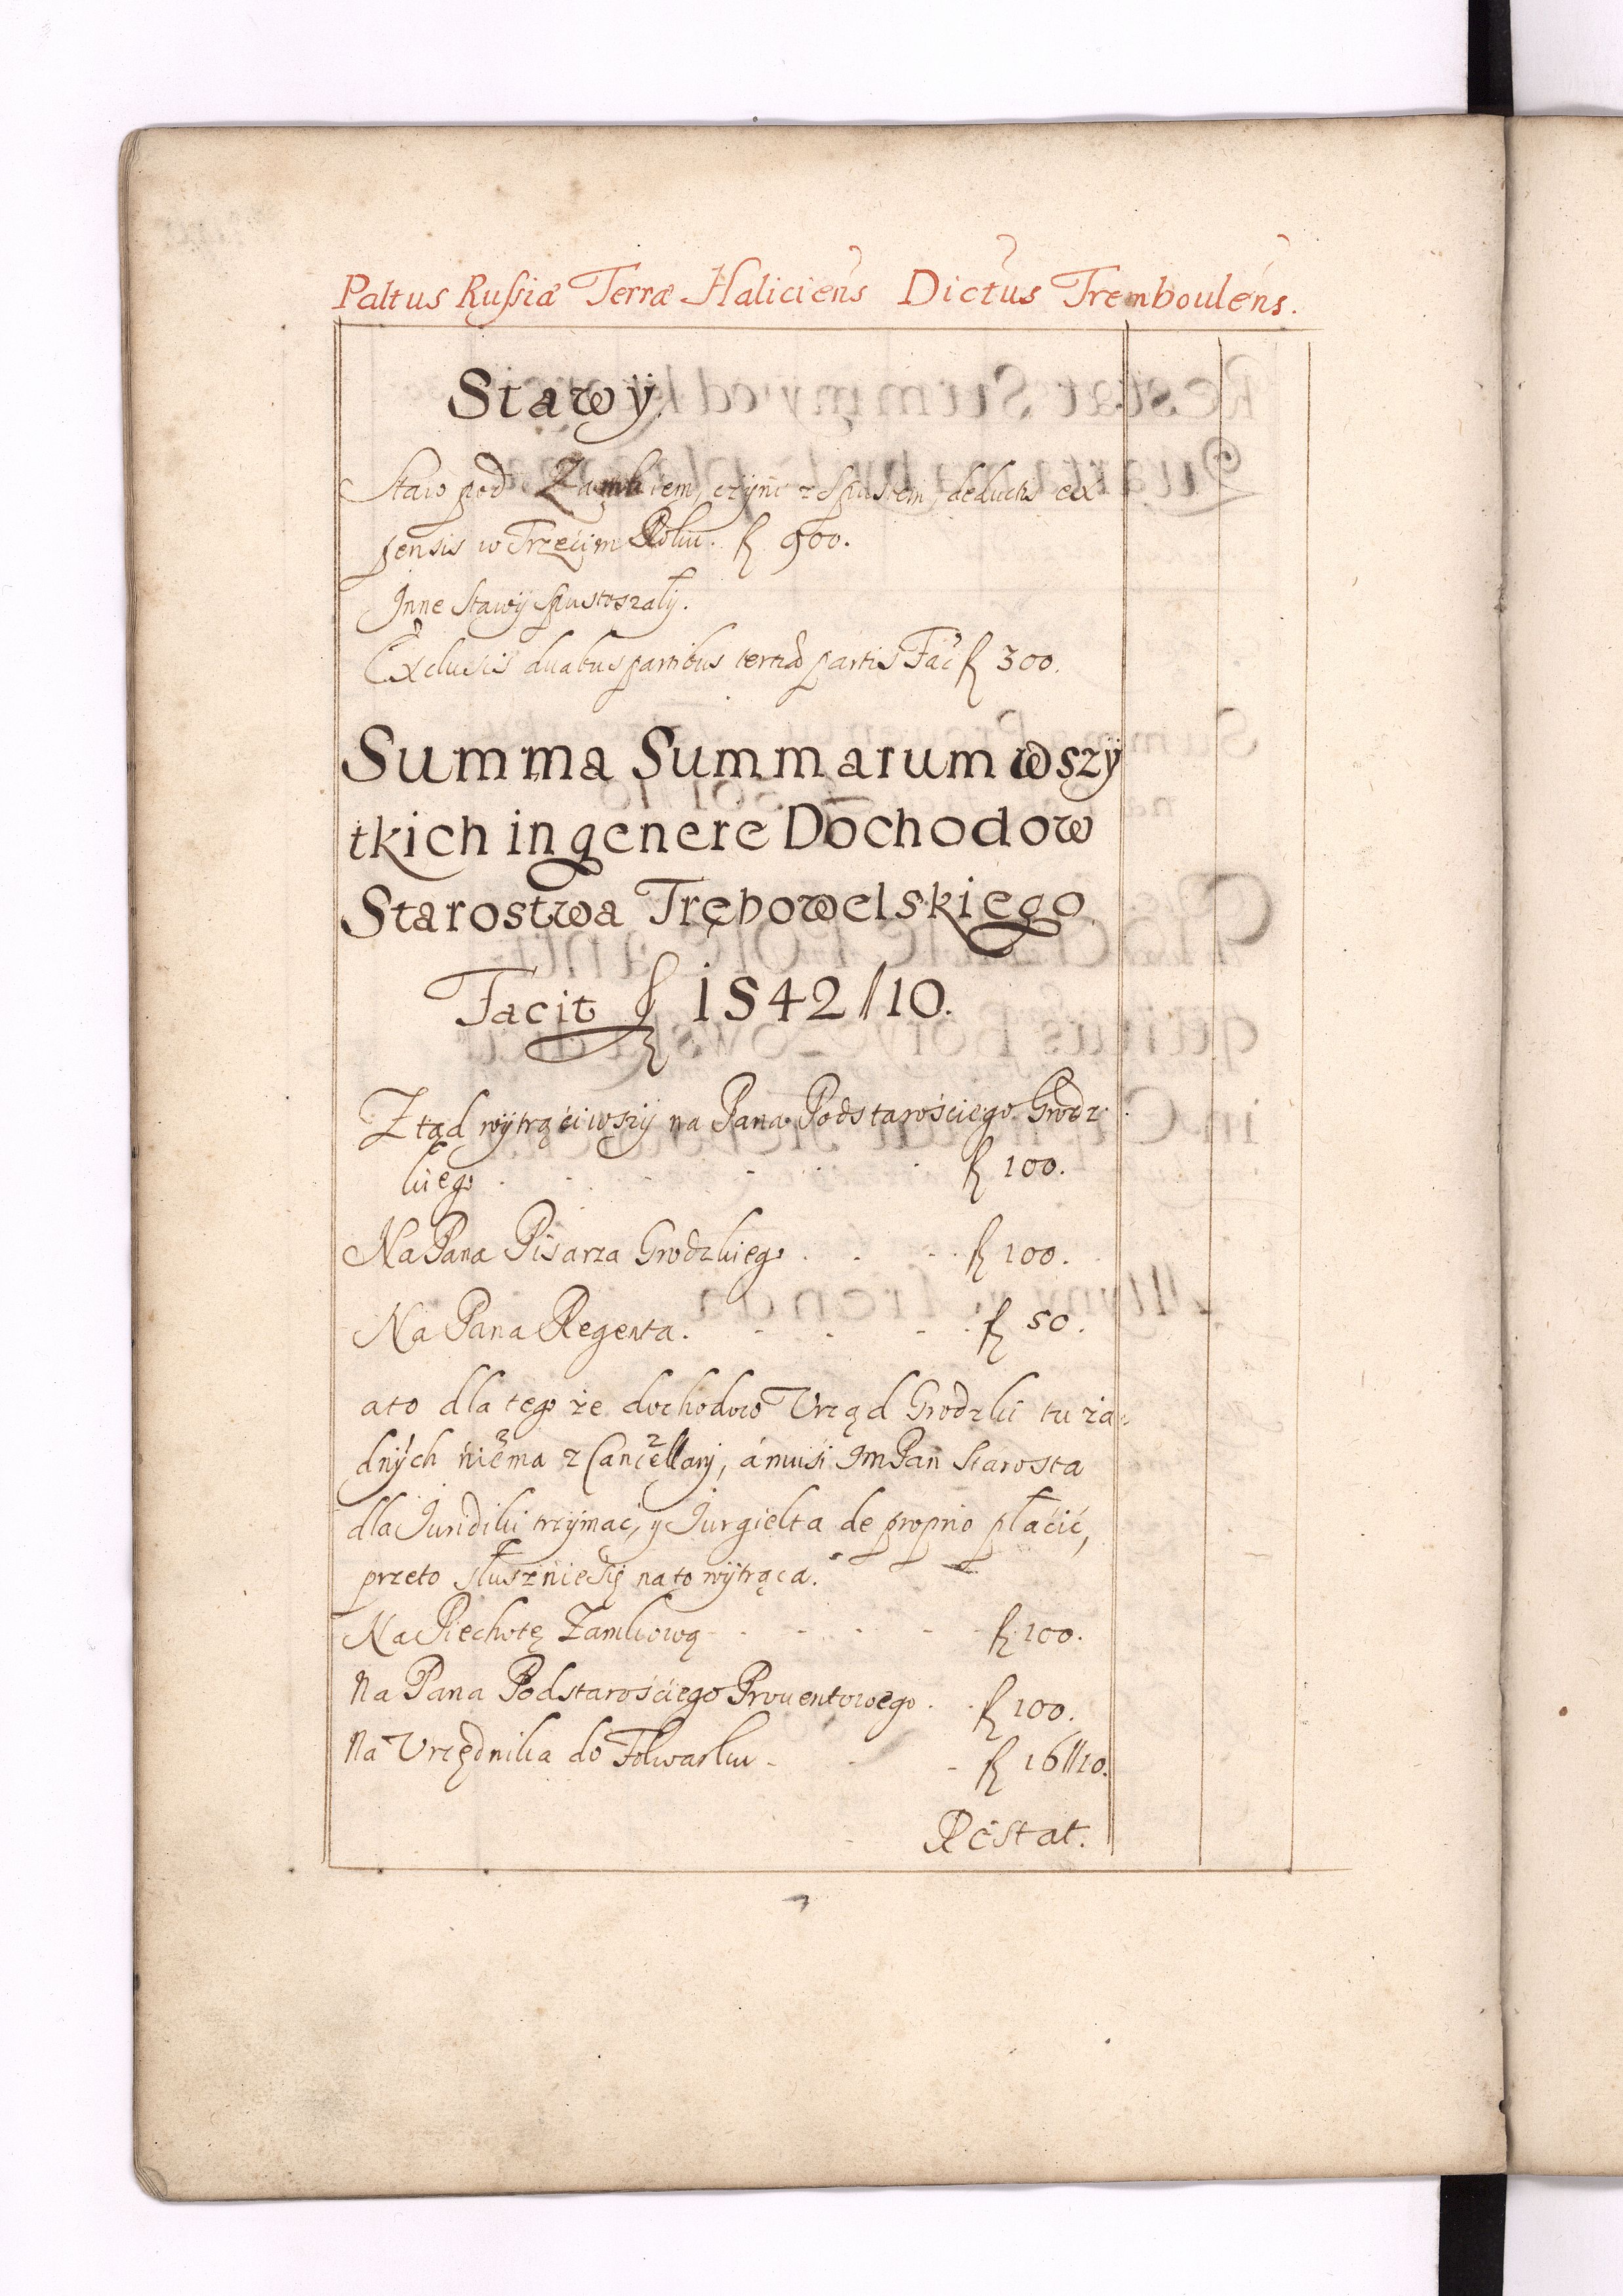 Paltus Russiæ Terræ Haliciens Dictus Tremboulens.
Stawÿ.
Staw pod Zamkiem, czÿni z Spustem deductis ex
pensis w Trzecim Roku. f 900.
Inne Stawÿ spustoszałÿ.
Exclusis duabus partibus tertia partis Fac f 300.
Summa Summarum wszÿ
tkich in genere Dochodow
Starostwa Trębowelskiego
Facit f 1542//10.
Ztąd wÿtrąciwszÿ na Pana Podstarościego Grodz-
kiego . . . . . f 100.
Na Pana Pisarza Grodzkiego . . . f 100.
Na Pana Regenta . . . . f 50.
a to dla tego że dochodow Urząd Grodzki tu ża-
dnÿch niema z Cancellarÿ, á musi Im Pan Starosta
dla Juridiki trzÿmać, y Jurgielta de proprio płacić,
przeto słusznie się na to wÿtrąca.
Na Piechotę Zamkową - - - - f 100.
Na Pana Podstarościego Prouentowego . . f 100.
Na Urzędnika do Folwarku - - f 16//10.
Restat.